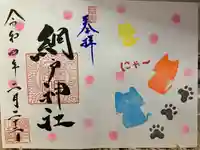 奉拝
網戸神社
令和四年二月二十二日
にゃ〜